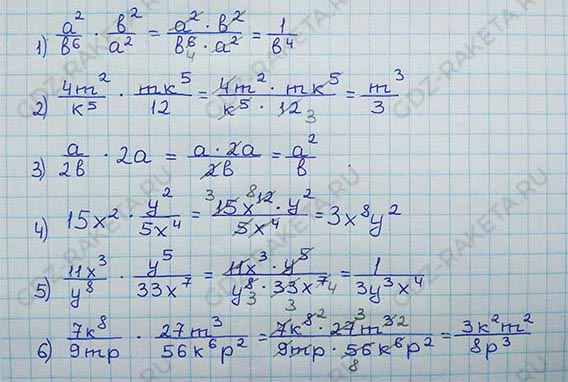 1) a²/b⁶ · b²/a² = a² · b²/b⁶ 4 · a² = 1/b⁴
2) 4m²/k⁵ · mk⁵/12 = 4m² · mk⁵/k⁵ · 12 3 = m³/3
3) a/2b · 2a = a · 2a/2b = a²/b
4) 15x² · y²/5x⁴ = 3 15x⁸ ¹² · y²/5x⁴ = 3x⁸y²
5) 11x³/y⁸ · y⁵/33x⁷ = 11x³ · y⁵/y⁸ 3 · 33 3 x⁷ 4 = 1/3y³x⁴
6) 7k⁸/9mp · 27m³/56k⁶p² = 7k⁸ ² · 27 3 m³ ²/9mp · 56 8 k⁶p² = 3k²m²/8p³
GDZ-RAKETA.RU